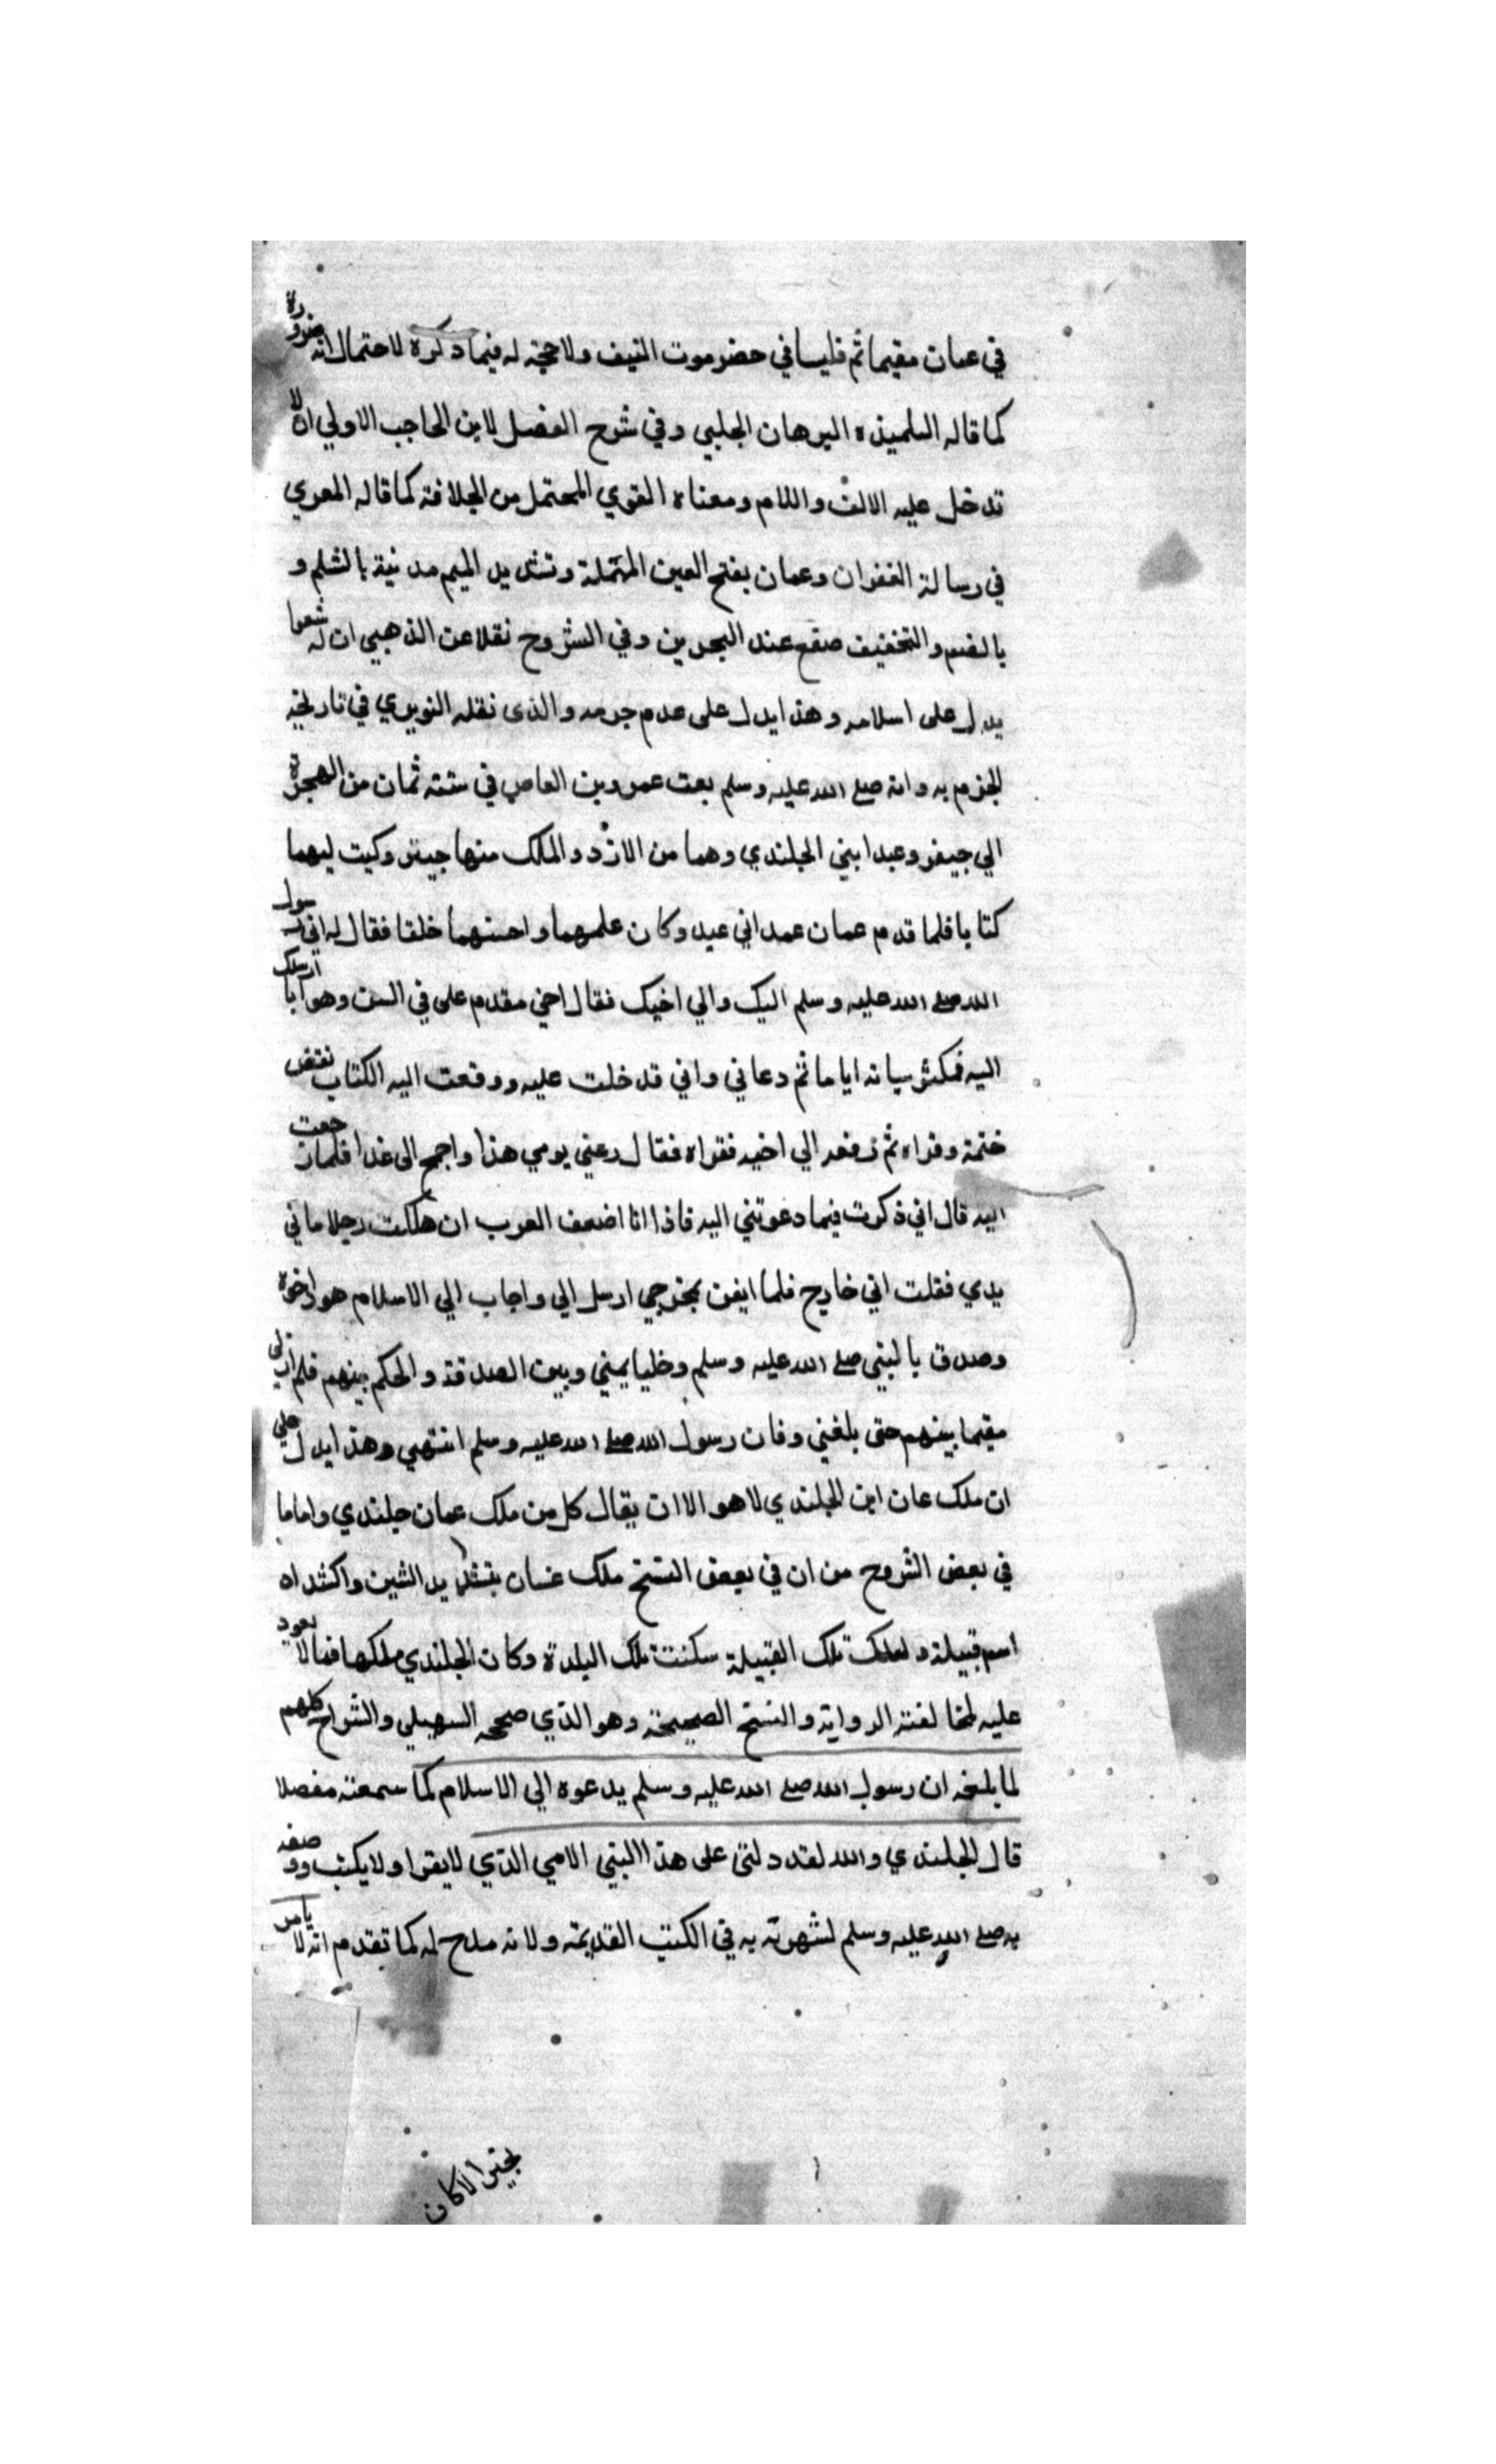 في عمان مقيما ثم قليسا في حضرموت النيف ولا حجة له فيما ذكره لاحتمال انه ضرورة
كما قاله التلميذه البرهان الحلبي وفي شرح الفصل لابن الحاجب الاولي ان لا
تدخل عليه الالف واللام ومعناه القوي المحتمل من الجلافة كما قاله المعري
في رسالة الغفران وعمان بفتح العين المهملة وتشديد الميم مدنية بالشلم و
بالضم والتخفيف صقع عند البحرين وفي الشروح نقلا عن الذهبي ان له شعرا
يدل على اسلامه وهذا يدل على عدم جرمه والذى نقله النويري في تاريخه
الجزم به وانه صلى الله عليه وسلم بعث عمرو بن العاص في ستة ثمان من الهجرة
الي جيفر وعبد ابني الجلندي وهما من الازد والملك منها جيفر وكيت ليهما
كتابا فلما قدم عمان عمد اني عبد وكان علمهما واحسنهما خلقا فقال له اني رسول
الله صلى الله عليه وسلم اليك والي اخيك فقال اخي مقدم على في السن وهو ايا ارسلك
اليه فمكث ببابه اياما ثم دعاني واني قدخلت عليه ووقعت اليه الكتاب نفض
ختمة وقراه ثم زفعه الي اخيه فقراه فقال دعني يومي هذا واجمع الى غدا فلما رجعت
اليه قال اني ذكرت فيما دعوتني اليه فاذا انا اضعف العرب ان هلكت رجلا ماني
يدي فقلت اني خارج فلما ايقن بمخرجي ارسل الي واجاب الي الاسلام هو واخوه
وصدق بالنبي صلى الله عليه وسلم وخليا بيني وبين الصدقة والحكم بينهم فلم ازل
مقيما بينهم حتى بلغني وفان رسول الله صلى الله عليه وسلم انتهي وهذا يدل على
ان ملك عان ابن الجلندي لا هو الا ان يقال كل من ملك عمان جلندي واما ما
في بعض الشروح من ان في بعض النسخ ملك غسان بتشديد الشين واكثداه
اسم قبيلة ولعلك تلك القبيلة سكنت تلك البلدة وكان الجلندي ملكها فما لا يعود
عليه لمخالفته الرواية والنسخ الصحيحة وهو الذي صححه السهيلي والشراح كلهم
لما بلغه ان رسول الله صلى الله عليه وسلم يدعوه الي الاسلام كما سمعته مفصلا
قال الجلندي والله لقد دلني على هذا النبي الامي الذي لايقرا ولا يكتب ووصفه
به صلى الله عليه وسلم لشهرته به في الكتب القديمة ولانه مدح له كما تقدم انه لا يامر
بخير الاكان